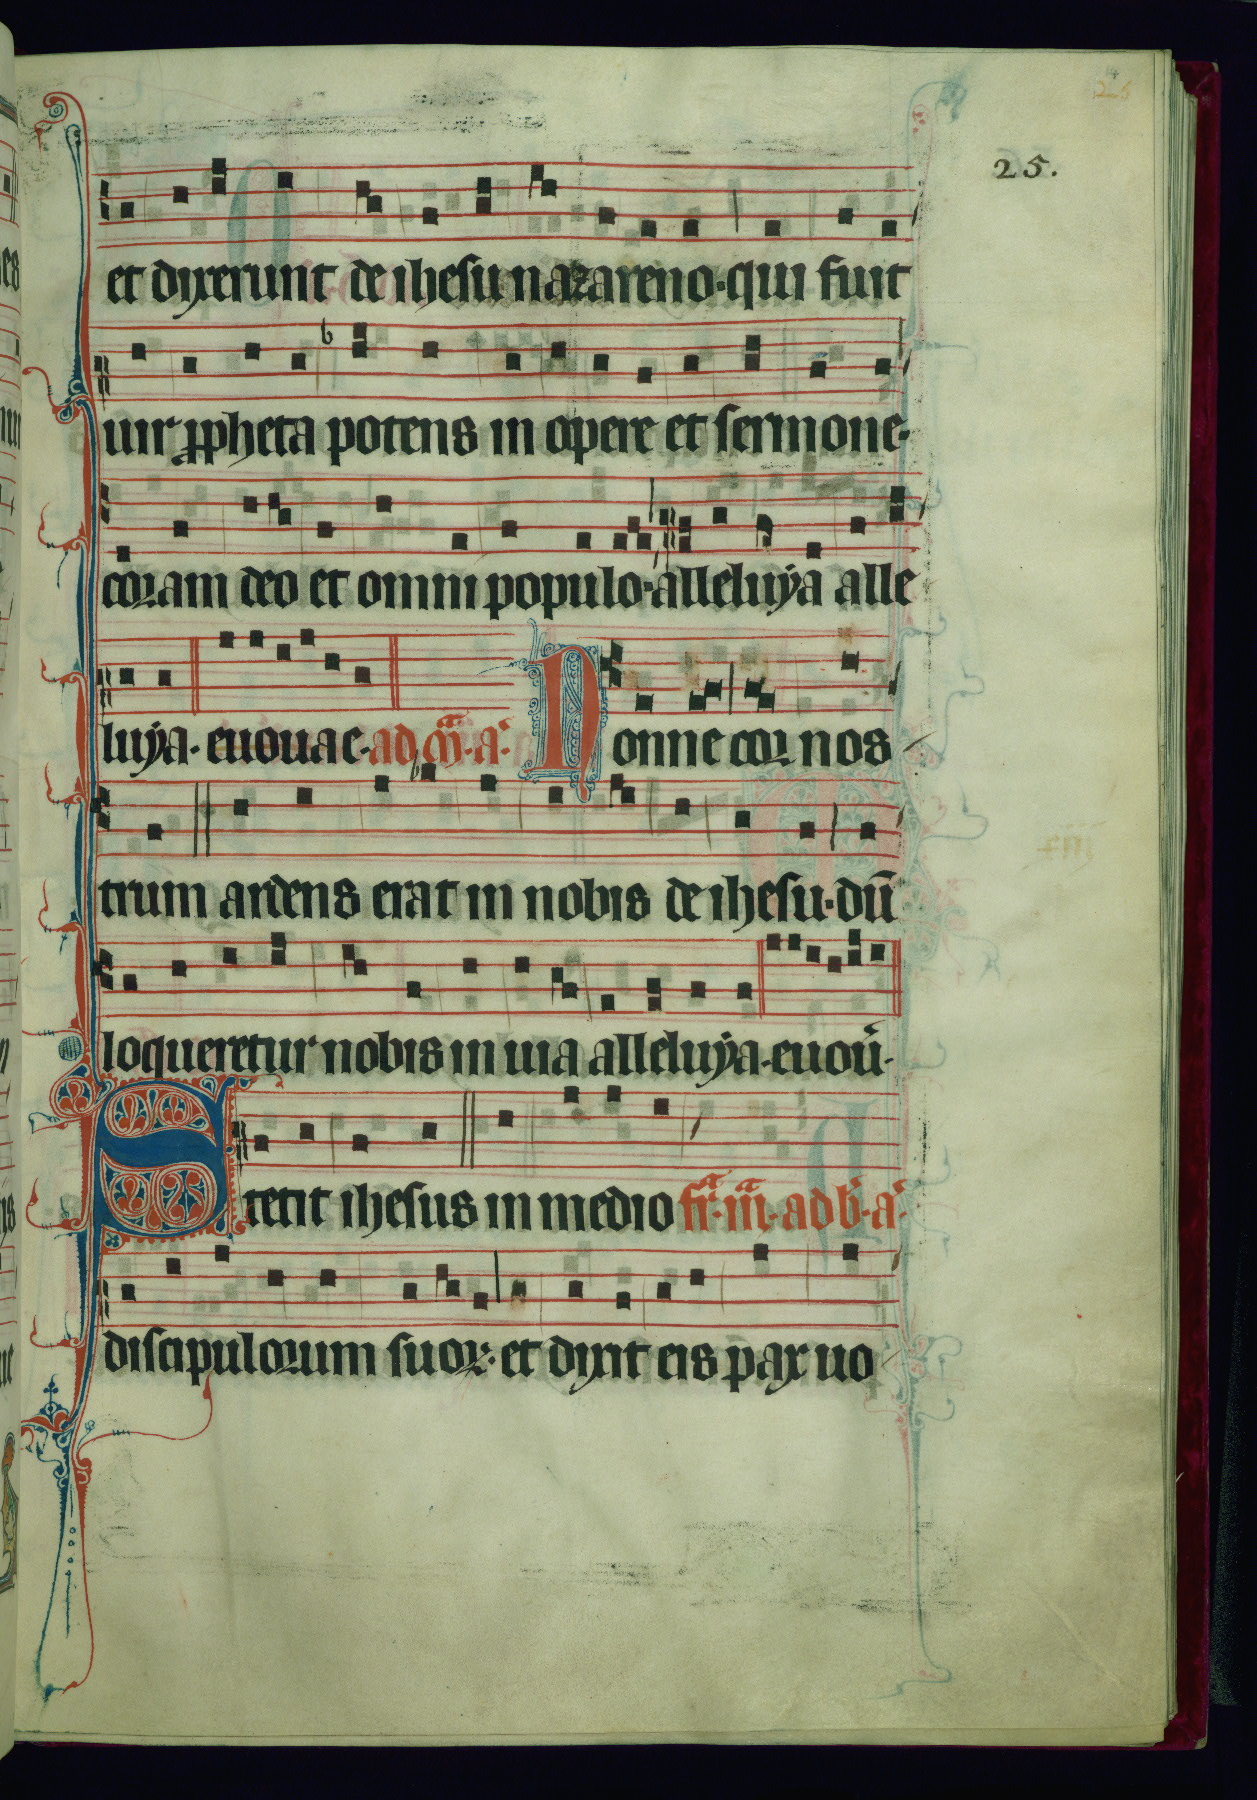 25
25.
et dixerunt de ihesu nazareno·qui fuit
uir ꝓpheta potens in opere et sermone·
coram deo et omni populo·alleluya alle
luya· euouae·ad m̄·a· Nonne cor nos
trum ardens erat in nobis de ihesu·dū
loqueretur nobis in uia alleluya·euou·
Stetit ihesus in medio fr·iii·ad b·a·
discipulorum suoꝝ· et dixit eis pax uo